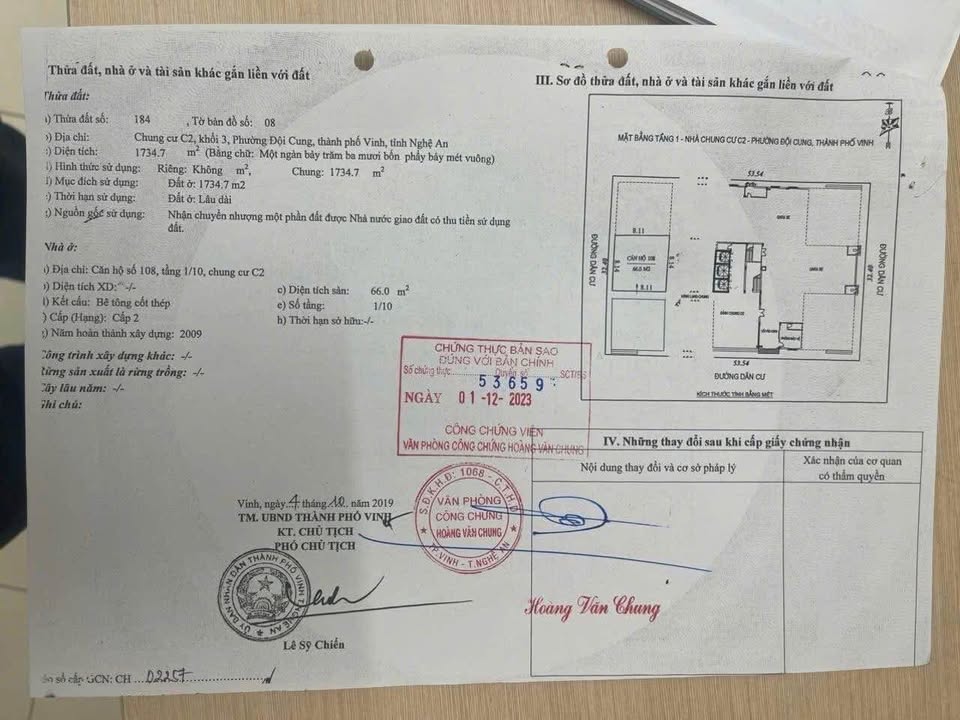 Thửa đất, nhà ở và tài sản khác gắn liền với đất
Thửa đất:
) Thửa đất số: 184 , Tờ bản đồ số: 08
) Địa chỉ: Chung cư C2, khối 3, Phường Đội Cung, thành phố Vinh, tỉnh Nghệ An
) Diện tích: 1734.7 m² (Bằng chữ: Một ngàn bảy trăm ba mươi bốn phẩy bảy mét vuông)
) Hình thức sử dụng: Riêng: Không m², Chung: 1734.7 m²
) Mục đích sử dụng: Đất ở: 1734.7 m2
) Thời hạn sử dụng: Đất ở: Lâu dài
) Nguồn gốc sử dụng: Nhận chuyển nhượng một phần đất được Nhà nước giao đất có thu tiền sử dụng
đất.
Nhà ở:
) Địa chỉ: Căn hộ số 108, tầng 1/10, chung cư C2
) Diện tích XD: -/- c) Diện tích sàn: 66.0 m²
) Kết cấu: Bê tông cốt thép e) Số tầng: 1/10
) Cấp (Hạng): Cấp 2 h) Thời hạn sở hữu:-/-
) Năm hoàn thành xây dựng: 2009
Công trình xây dựng khác: -/-
Rừng sản xuất là rừng trồng: -/-
Cây lâu năm: -/-
Ghi chú:
Vinh, ngày 4 tháng 10 năm 2019
TM. UBND THÀNH PHỐ VINH
KT. CHỦ TỊCH
PHÓ CHỦ TỊCH
ỦY BAN NHÂN DÂN THÀNH PHỐ VINH T. NGHỆ AN
Lê Sỹ Chiến
số cấp GCN: CH 02257
CHỨNG THỰC BẢN SAO
ĐÚNG VỚI BẢN CHÍNH
Số chứng thực: 53659 Quyển số SCT/BS
NGÀY 01-12-2023
CÔNG CHỨNG VIÊN
VĂN PHÒNG CÔNG CHỨNG HOÀNG VĂN CHUNG
S.Đ.K.H.Đ: 1068 - C.T.H.D
VĂN PHÒNG
CÔNG CHỨNG
HOÀNG VĂN CHUNG
TP.VINH - T.NGHỆ AN
III. Sơ đồ thửa đất, nhà ở và tài sản khác gắn liền với đất
MẶT BẰNG TẦNG 1 - NHÀ CHUNG CƯ C2 - PHƯỜNG ĐỘI CUNG, THÀNH PHỐ VINH
53.54
8.11
CĂN HỘ 108
66.0 M2
8.14
8.14
8.11
ĐƯỜNG DÂN CƯ
32.40
ĐƯỜNG DÂN CƯ
32.40
53.54
ĐƯỜNG DÂN CƯ
KÍCH THƯỚC TÍNH BẰNG MÉT
IV. Những thay đổi sau khi cấp giấy chứng nhận
Nội dung thay đổi và cơ sở pháp lý
Xác nhận của cơ quan
có thẩm quyền
Hoàng Văn Chung